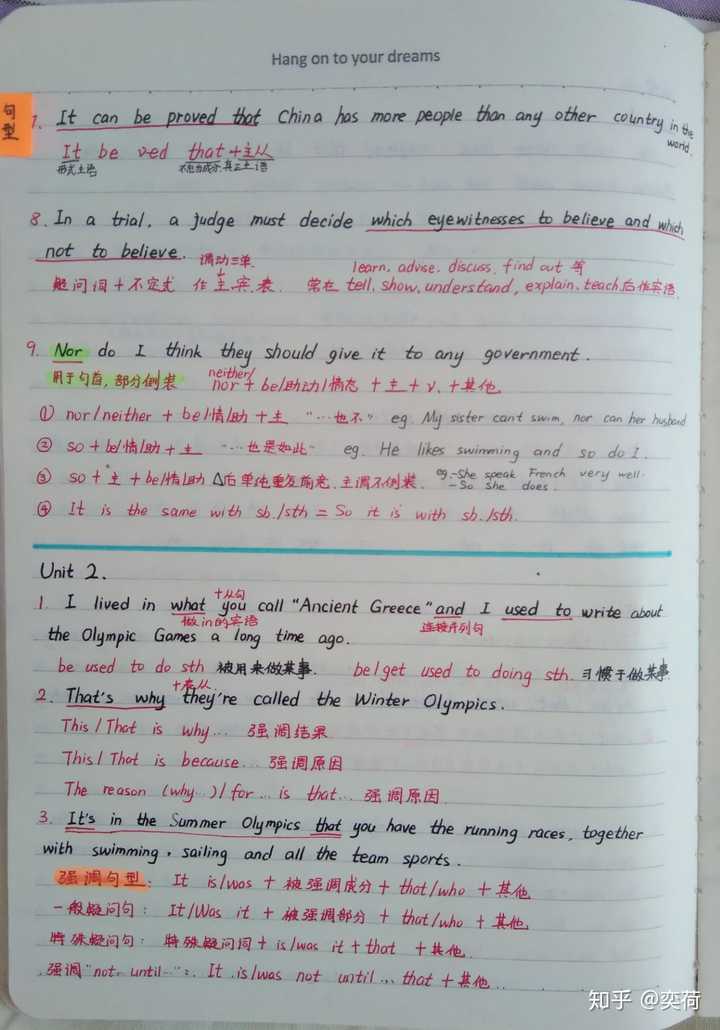 Hang on to your dreams
句型
7. It can be proved that China has more people than any other country in the world.
It be ved that+主从
形式主语 不担当成分,真正主语
8. In a trial, a judge must decide which eyewitnesses to believe and which
not to believe. 谓动三单.
learn, advise, discuss, find out 等
疑问词+不定式 作主.宾.表. 常在 tell, show, understand, explain, teach后作宾语.
9. Nor do I think they should give it to any government.
用于句首,部分倒装 neither/nor + be/助动/情态 +主+v.+其他
① nor/neither + be/情/助 +主 "…也不" eg. My sister cant swim, nor can her husband
② so + be/情/助 + 主 "…也是如此" eg. He likes swimming and so do I.
③ so + 主 + be/情/助 △后单纯重复前克.主谓不倒装. eg.-She speak French very well.
- So she does.
④ It is the same with sb./sth = So it is with sb./sth.
Unit 2.
+从句
1. I lived in what you call "Ancient Greece" and I used to write about
做in的宾语 连接并列句
the Olympic Games a long time ago.
be used to do sth 被用来做某事. be/get used to doing sth. 习惯于做某事
+表从
2. That's why they're called the Winter Olympics.
This/That is why… 强调结果
This/That is because… 强调原因
The reason (why…)/for… is that… 强调原因.
3. It's in the Summer Olympics that you have the running races, together
with swimming, sailing and all the team sports.
强调句型: It is/was + 被强调成分 + that/who + 其他
一般疑问句: It/Was it + 被强调部分 + that/who + 其他
特殊疑问句: 特殊疑问词 + is/was it + that +其他.
强调"not… until…": It is/was not until … that + 其他.
知乎 @奕荷